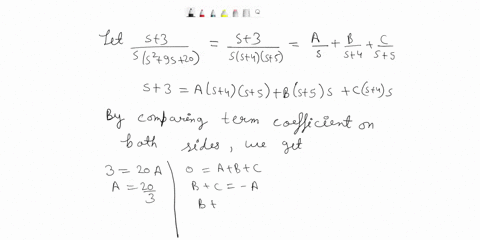 Let s+3/s(s²+9s+20) = s+3/s(s+4)(s+5) = A/s + B/s+4 + C/s+5
s+3 = A(s+4)(s+5)+B(s+5)s +C(s+4)s
By comparing term coefficient on
both sides, we get
3 = 20A
A = 20/3
0 = A+B+C
B+C = -A
B+